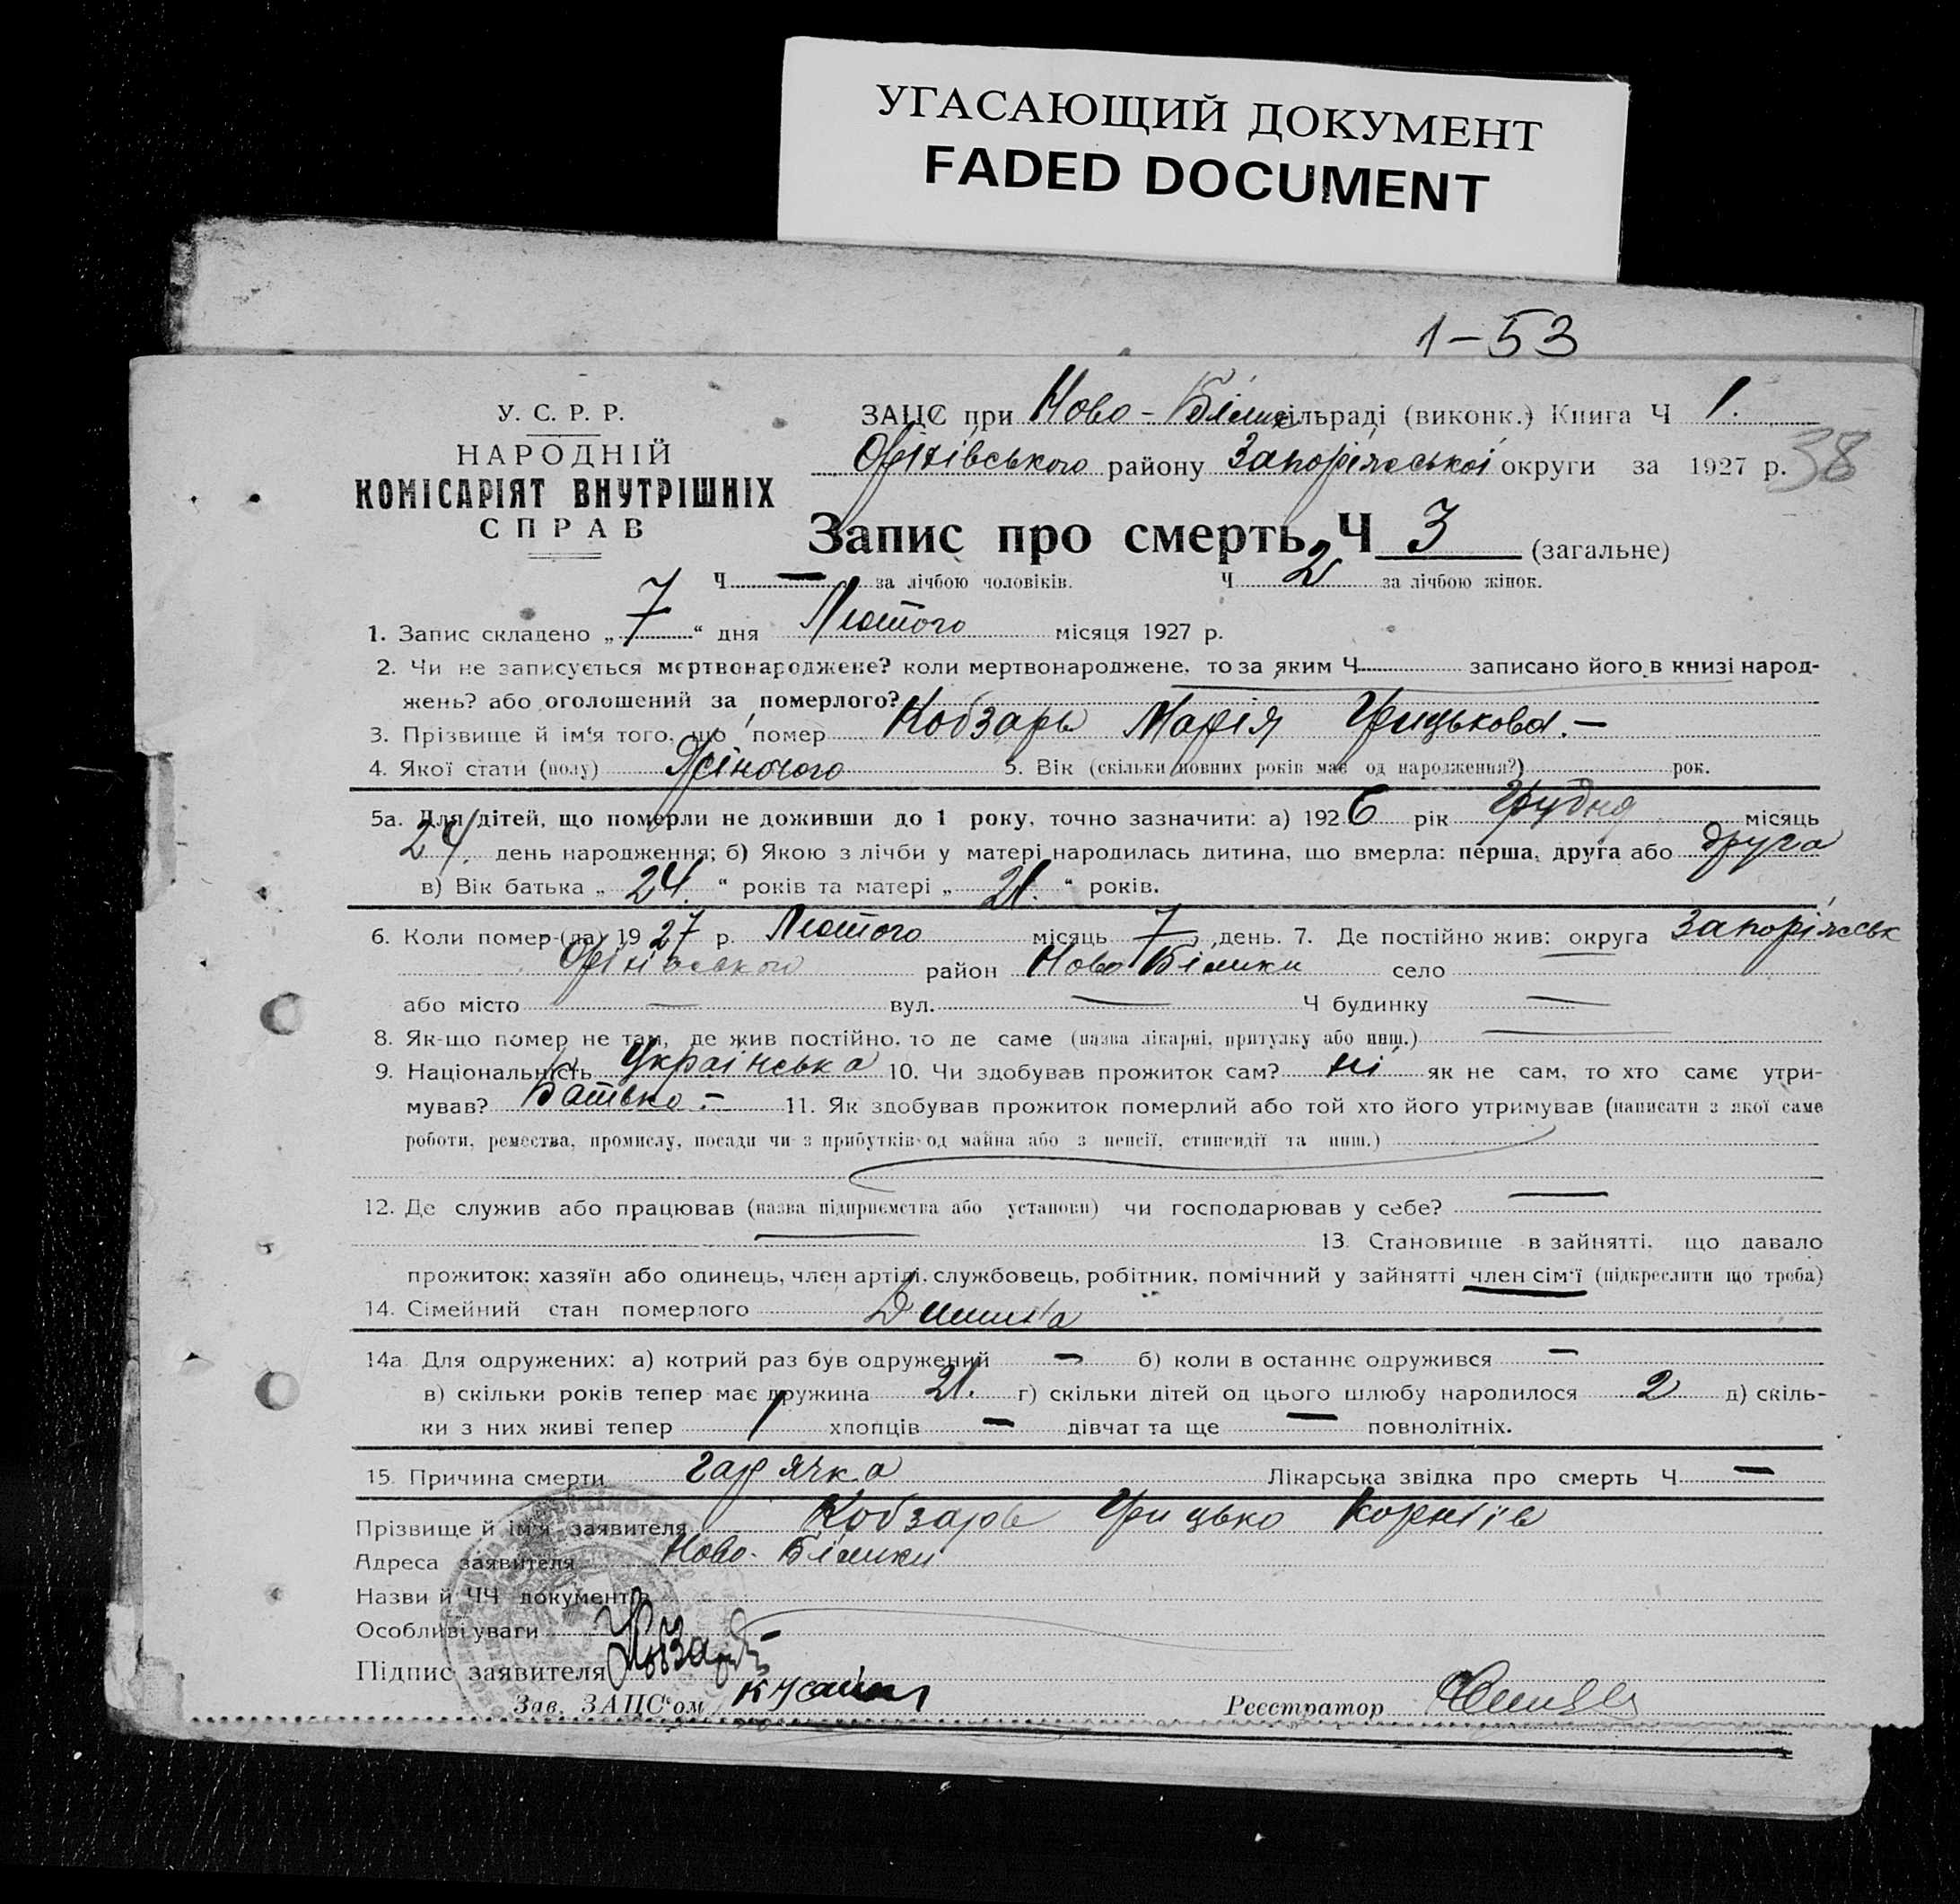 УГАСАЮЩИЙ ДОКУМЕНТ
FADED DOCUMENT
1-53
У. С. Р. Р.
НАРОДНІЙ
КОМІСАРІЯТ ВНУТРІШНІХ
СПРАВ
ЗАЦС при Ново-Білик сільраді (виконк.) Книга Ч 1.
Оріхівського району Запоріжської округи за 1927 р. 38
Запис про смерть Ч 3 (загальне)
Ч — за лічбою чоловіків. Ч 2 за лічбою жінок.
1. Запис складено „7“ дня Лютого місяця 1927 р.
2. Чи не записується мертвонароджене? коли мертвонароджене, то за яким Ч записано його в книзі народ-
жень? або оголошений за померлого?
3. Прізвище й ім'я того, що помер Кобзарь Марія Грицькова.—
4. Якої стати (полу) Жіночого 5. Вік (скільки повних років має од народження?) рок.
5а. Для дітей, що померли не доживши до 1 року, точно зазначити: а) 1926 рік Грудня місяць
24. день народження; б) Якою з лічби у матері народилась дитина, що вмерла: перша, друга або друга
в) Вік батька „24.“ років та матері „21.“ років.
6. Коли помер-(ла) 1927 р. Лютого місяць 7 день. 7. Де постійно жив: округа Запоріжськ
Оріхівського район Ново Білики село
або місто — вул. — Ч будинку —
8. Як-що помер не там, де жив постійно, то де саме (назва лікарні, притулку або инш.) —
9. Національність Українська 10. Чи здобував прожиток сам? ні як не сам, то хто саме утри-
мував? Батько.— 11. Як здобував прожиток померлий або той хто його утримував (написати з якої саме
роботи, ремества, промислу, посади чи з прибутків од майна або з пенсії, стипендії та инш.)
12. Де служив або працював (назва підприємства або установи) чи господарював у себе? —
— 13. Становище в зайнятті, що давало
прожиток: хазяїн або одинець, член артілі, службовець, робітник, помічний у зайнятті член сім'ї (підкреслити що треба)
14. Сімейний стан померлого Дитина
14а Для одружених: а) котрий раз був одружений — б) коли в останнє одружився —
в) скільки років тепер має дружина 21. г) скільки дітей од цього шлюбу народилося 2 д) скіль-
ки з них живі тепер 1 хлопців — дівчат та ще — повнолітніх.
15. Причина смерти гарячка Лікарська звідка про смерть Ч —
Прізвище й ім'я заявителя Кобзарь Грицько Корніїв
Адреса заявителя Ново-Білики
Назви й ЧЧ документів
Особливі уваги
Підпис заявителя Кобзарь
Зав. ЗАЦС'ом
Реєстратор